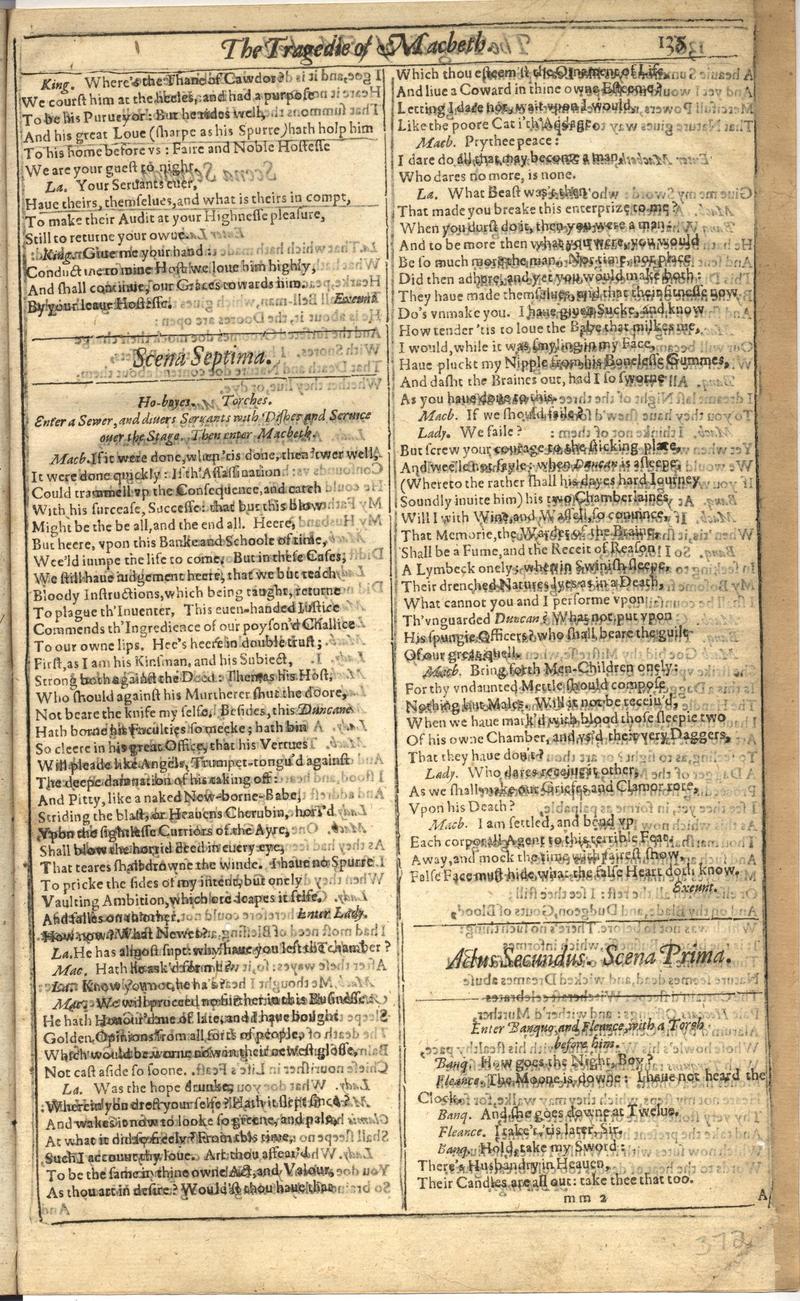 The Tragedie of Macbeth. 135
King. Where's the Thane of Cawdor?
We courst him at the heeles, and had a purpose
To be his Purueyor: But he rides well,
And his great Loue (sharpe as his Spurre) hath holp him
To his home before vs: Faire and Noble Hostesse
We are your guest to night.
La. Your Seruants euer,
Haue theirs, themselues, and what is theirs in compt,
To make their Audit at your Highnesse pleasure,
Still to returne your owne.
King. Giue me your hand:
Conduct me to mine Host we loue him highly,
And shall continue, our Graces towards him.
By your leaue Hostesse. Exeunt
Scena Septima.
Ho-boyes. Torches.
Enter a Sewer, and diuers Seruants with Dishes and Seruice
ouer the Stage. Then enter Macbeth.
Macb. If it were done, when 'tis done, then 'twer well,
It were done quickly: If th'Assassination
Could trammell vp the Consequence, and catch
With his surcease, Successe: that but this blow
Might be the be all, and the end all. Heere,
But heere, vpon this Banke and Schoole of time,
Wee'ld iumpe the life to come. But in these Cases,
We still haue iudgement heere, that we but teach
Bloody Instructions, which being taught, returne
To plague th'Inuenter, This euen-handed Iustice
Commends th'Ingredience of our poyson'd Challice
To our owne lips. Hee's heere in double trust;
First, as I am his Kinsman, and his Subiect,
Strong both against the Deed: Then, as his Host,
Who should against his Murtherer shut the doore,
Not beare the knife my selfe. Besides, this Duncane
Hath borne his Faculties so meeke; hath bin
So cleere in his great Office, that his Vertues
Will pleade like Angels, Trumpet-tongu'd against
The deepe damnation of his taking off:
And Pitty, like a naked New-borne-Babe,
Striding the blast, or Heauens Cherubin, hors'd
Vpon the sightlesse Curriors of the Ayre,
Shall blow the horrid deed in euery eye,
That teares shall drowne the winde. I haue no Spurre
To pricke the sides of my intent, but onely
Vaulting Ambition, which ore-leapes it selfe,
And falles on th'other. Enter Lady.
How now? What Newes?
La. He has almost supt: why haue you left the chamber?
Mac. Hath he ask'd for me?
La. Know you not, he ha's?
Mac. We will proceed no further in this Businesse:
He hath Honour'd me of late, and I haue bought
Golden Opinions from all sorts of people,
Which would be worne now in their newest glosse,
Not cast aside so soone.
La. Was the hope drunke,
Wherein you drest your selfe? Hath it slept since?
And wakes it now to looke so greene, and pale,
At what it did so freely? From this time,
Such I account thy loue. Art thou affear'd
To be the same in thine owne Act, and Valour,
As thou art in desire? Would'st thou haue that
Which thou esteem'st the Ornament of Life,
And liue a Coward in thine owne Esteeme?
Letting I dare not, wait vpon I would,
Like the poore Cat i'th'Addage.
Macb. Prythee peace:
I dare do all that may become a man,
Who dares no more, is none.
La. What Beast was't then
That made you breake this enterprize to me?
When you durst do it, then you were a man:
And to be more then what you were, you would
Be so much more the man. Nor time, nor place
Did then adhere, and yet you would make both:
They haue made themselues, and that their fitnesse now
Do's vnmake you. I haue giuen Sucke, and know
How tender 'tis to loue the Babe that milkes me,
I would, while it was smyling in my Face,
Haue pluckt my Nipple from his Bonelesse Gummes,
And dasht the Braines out, had I so sworne
As you haue done to this.
Macb. If we should faile?
Lady. We faile?
But screw your courage to the sticking place,
And wee'le not fayle: when Duncan is asleepe,
(Whereto the rather shall his dayes hard Iourney
Soundly inuite him) his two Chamberlaines
Will I with Wine, and Wassell, so conuince,
That Memorie, the Warder of the Braine,
Shall be a Fume, and the Receit of Reason
A Lymbeck onely: when in Swinish sleepe,
Their drenched Natures lyes as in a Death,
What cannot you and I performe vpon
Th'vnguarded Duncan? What not put vpon
His spungie Officers? who shall beare the guilt
Of our great quell.
Macb. Bring forth Men-Children onely:
For thy vndaunted Mettle should compose
Nothing but Males. Will it not be receiu'd,
When we haue mark'd with blood those sleepie two
Of his owne Chamber, and vs'd their very Daggers,
That they haue don't?
Lady. Who dares receiue it other,
As we shall make our Griefes and Clamor rore,
Vpon his Death?
Macb. I am settled, and bend vp
Each corporall Agent to this terrible Feat.
Away, and mock the time with fairest show,
False Face must hide what the false Heart doth know.
Exeunt.
Actus Secundus. Scena Prima.
Enter Banquo, and Fleance, with a Torch
before him.
Banq. How goes the Night, Boy?
Fleance. The Moone is downe: I haue not heard the
Clock.
Banq. And she goes downe at Twelue.
Fleance. I take't, 'tis later, Sir.
Banq. Hold, take my Sword:
There's Husbandry in Heauen,
Their Candles are all out: take thee that too.
mm 2 A
372